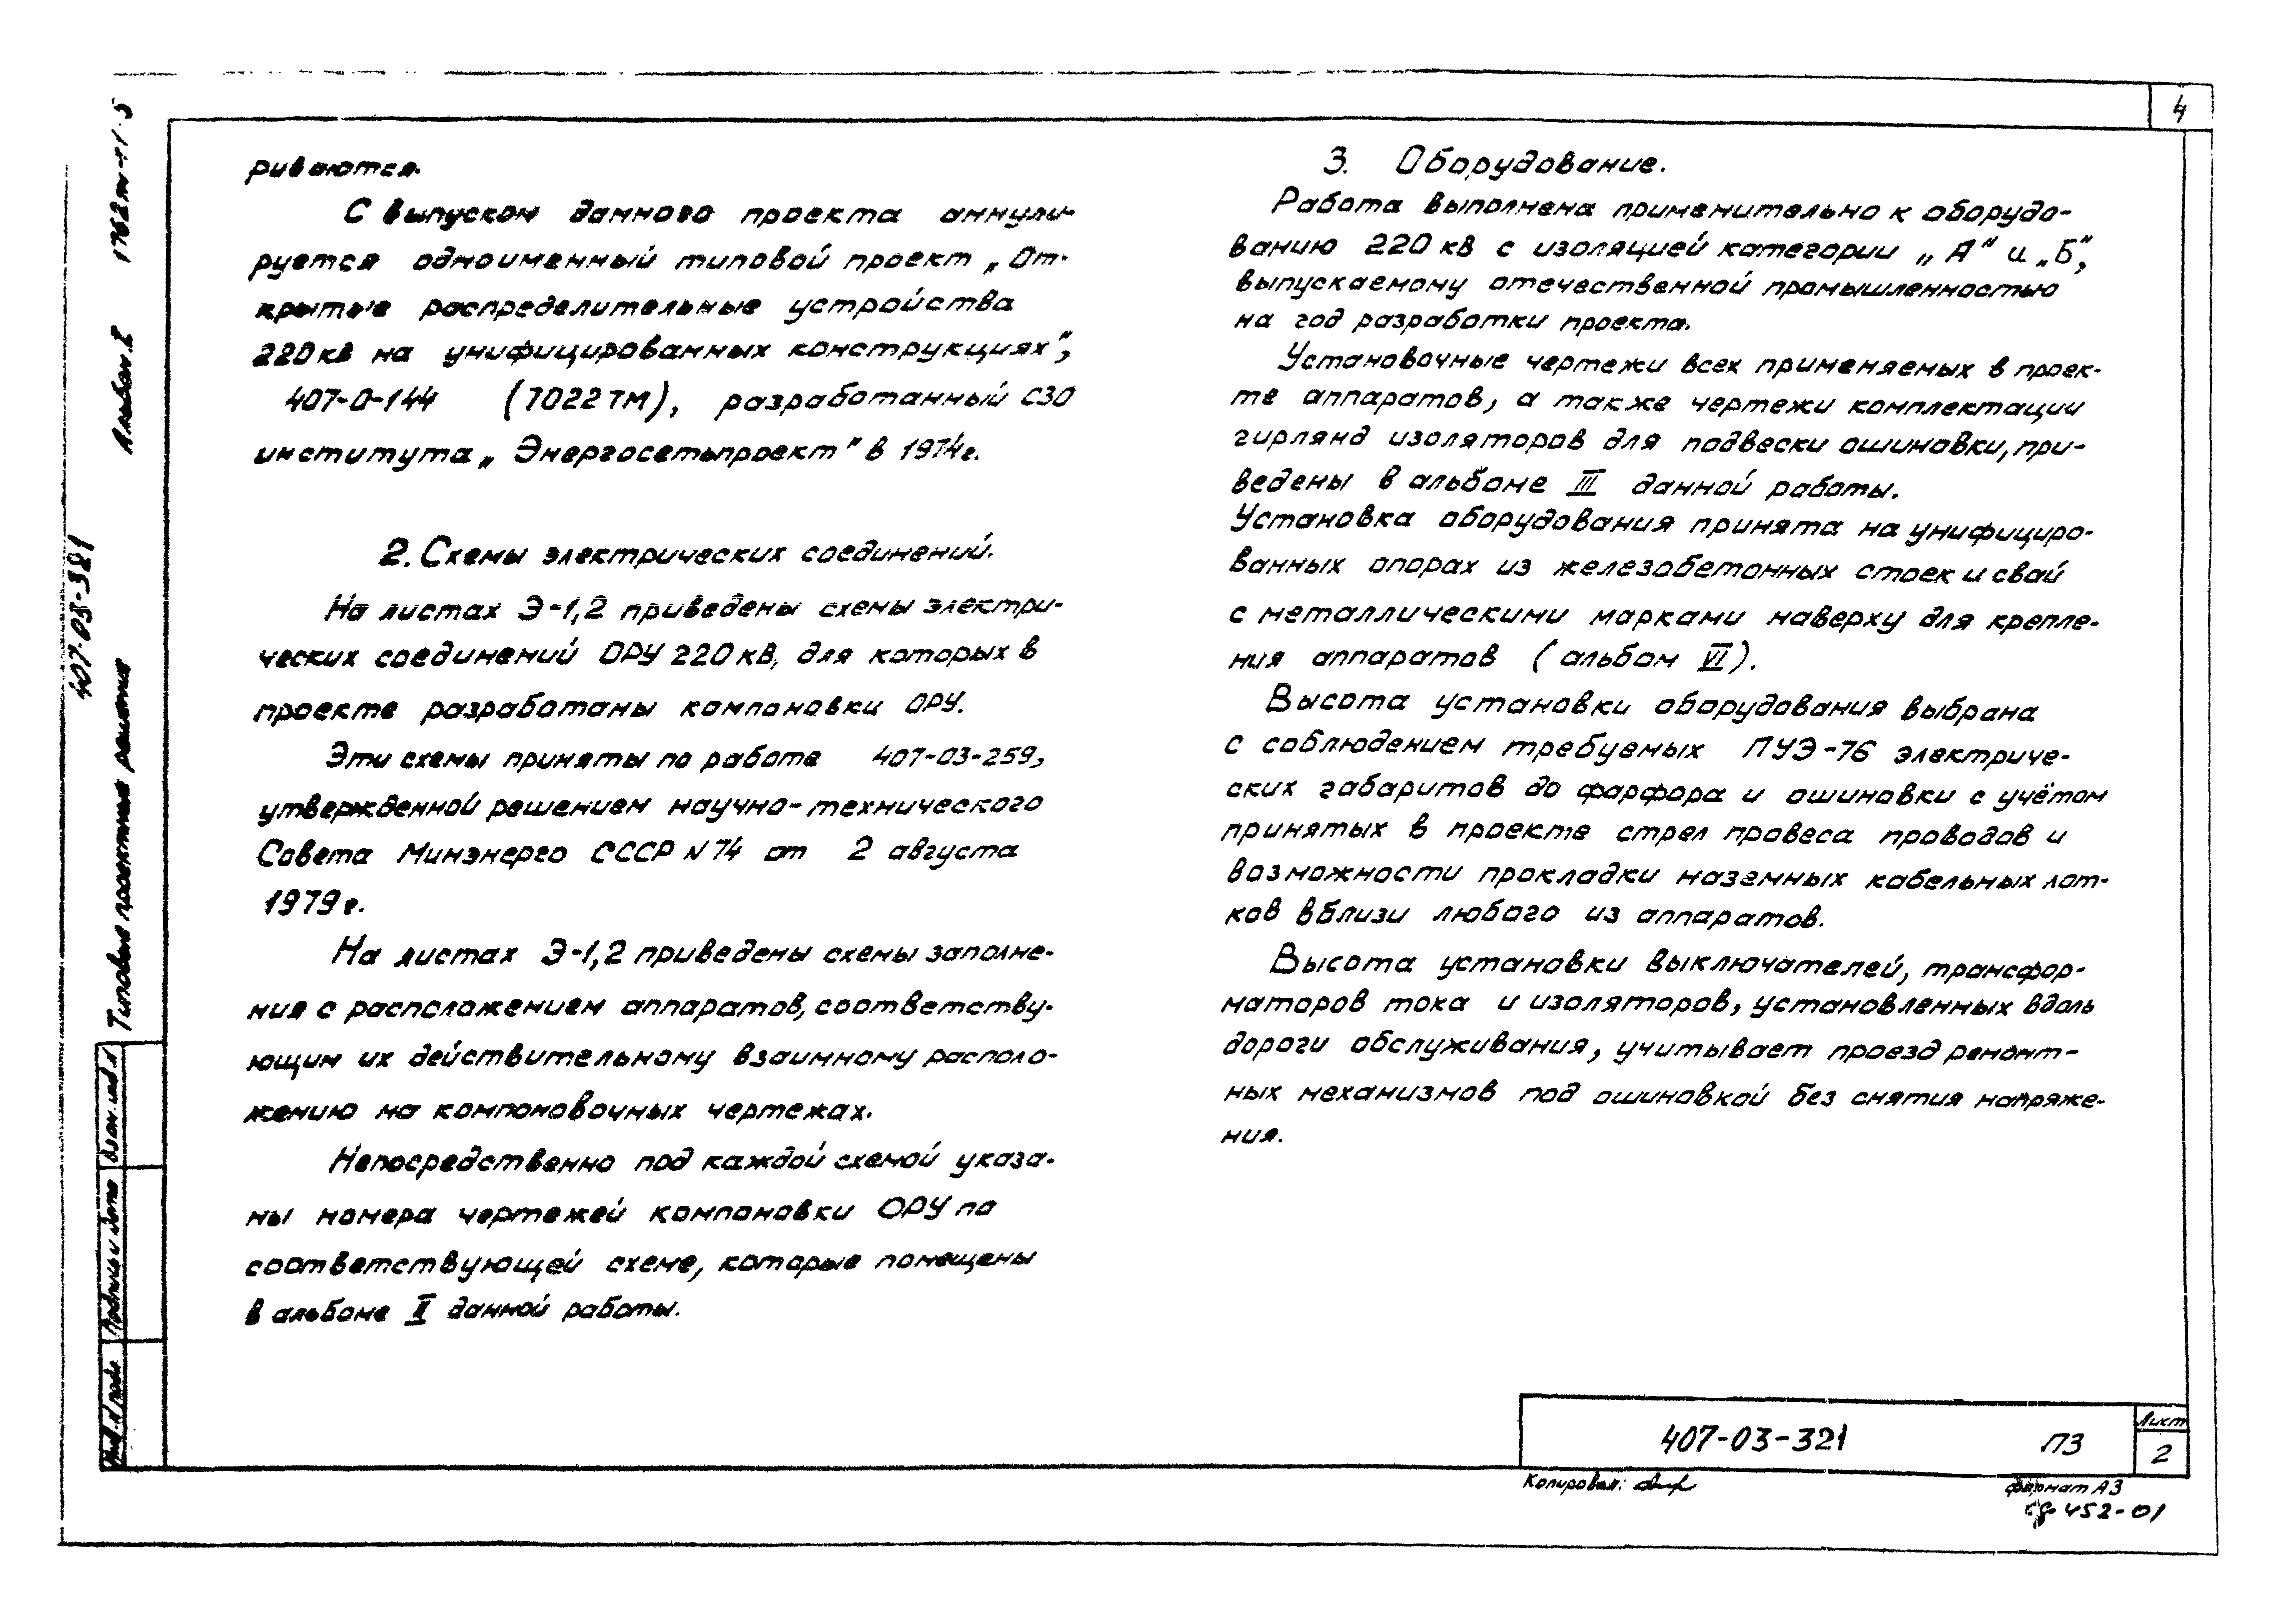 4
риваются.
С выпуском данного проекта аннули-
руется одноименный типовой проект „От-
крытые распределительные устройства
220 кв на унифицированных конструкциях",
407-0-144 (7022 ТМ), разработанный СЗО
института „Энергосетьпроект" в 1974г.
2. Схемы электрических соединений.
На листах Э-1,2 приведены схемы электри-
ческих соединений ОРУ 220 кв, для которых в
проекте разработаны компоновки ОРУ.
Эти схемы приняты по работе 407-03-259,
утвержденной решением научно-технического
Совета Минэнерго СССР N 74 от 2 августа
1979 г.
На листах Э-1,2 приведены схемы заполне-
ния с расположением аппаратов, соответству-
ющим их действительному взаимному располо-
жению на компоновочных чертежах.
Непосредственно под каждой схемой указа-
ны номера чертежей компоновки ОРУ по
соответствующей схеме, которые помещены
в альбоме II данной работы.
3. Оборудование.
Работа выполнена применительно к оборудо-
ванию 220 кв с изоляцией категории „А" и „Б",
выпускаемому отечественной промышленностью
на год разработки проекта.
Установочные чертежи всех применяемых в проек-
те аппаратов, а также чертежи комплектации
гирлянд изоляторов для подвески ошиновки, при-
ведены в альбоме III данной работы.
Установка оборудования принята на унифициро-
ванных опорах из железобетонных стоек и свай
с металлическими марками наверху для крепле-
ния аппаратов (альбом VI).
Высота установки оборудования выбрана
с соблюдением требуемых ПУЭ-76 электриче-
ских габаритов до фарфора и ошиновки с учётом
принятых в проекте стрел провеса проводов и
возможности прокладки наземных кабельных лот-
ков вблизи любого из аппаратов.
Высота установки выключателей, трансфор-
маторов тока и изоляторов, установленных вдоль
дороги обслуживания, учитывает проезд ремонт-
ных механизмов под ошиновкой без снятия напряже-
ния.
407-03-321 ПЗ
Лист
2
Копировал:
Формат А3
452-01
407-03-321
Типовые проектные решения Альбом I 1762тм-т1-5
Взам. инв.
Подпись и дата
Инв. N подл.